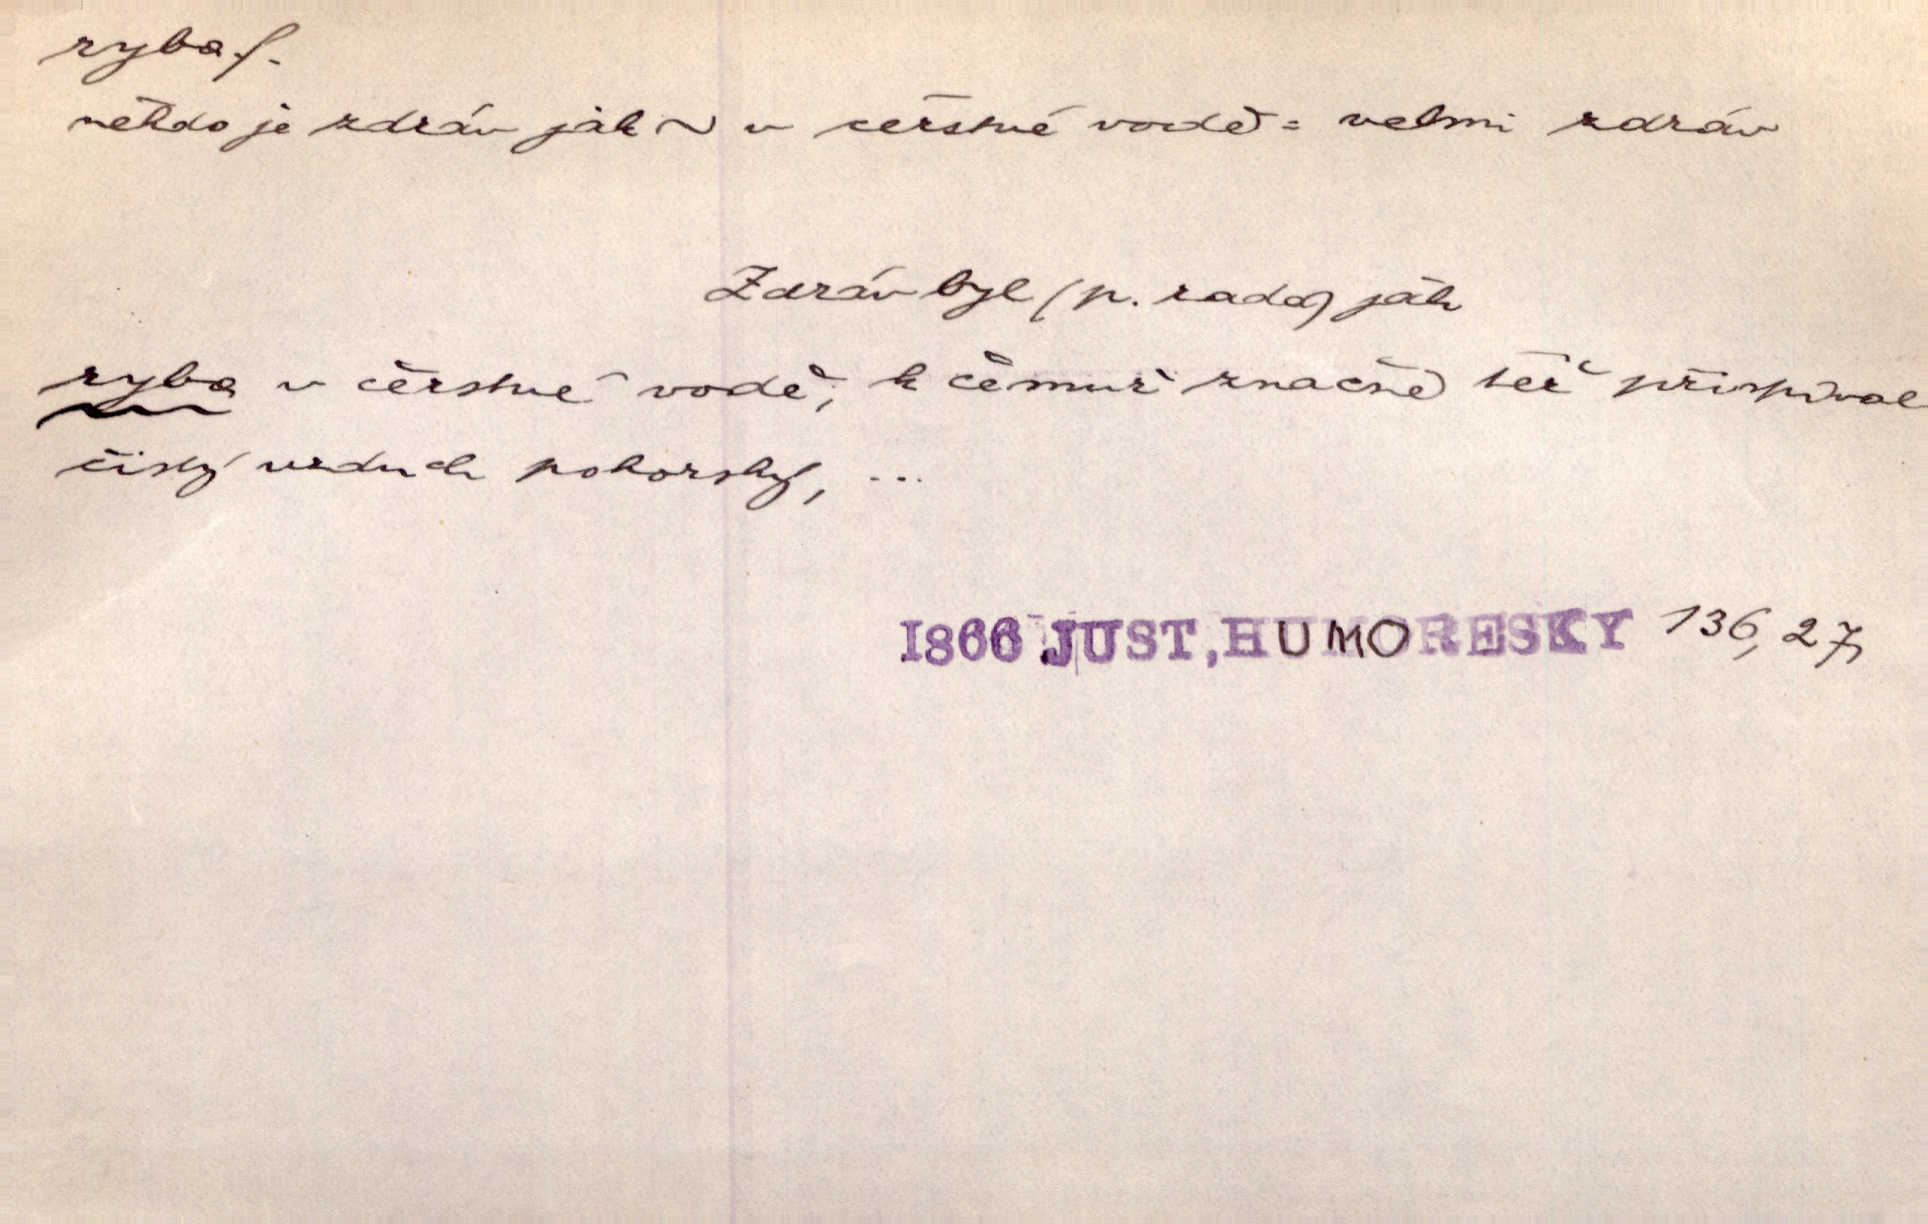 ryba f.
někdo je zdráv jak ~ v čerstvé vodě = velmi zdráv
Zdráv byl (p. rada) jak
ryba v čerstvé vodě, k čemuž značně též přispíval
čistý vzduch pohorský, ...
1866 JUST, HUMORESKY 136, 27